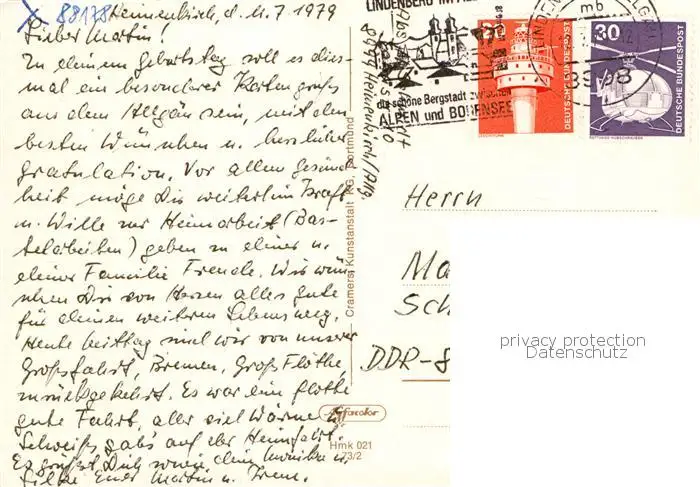 88178
Heimenkirch, d. 11.7 1979
Lieber Martin!
Zu deinem Geburtstag soll es dies
mal ein besonderer Kartengruss
aus dem Allgäu sein, mit den
besten Wünschen u. herzlicher
Gratulation. Vor allem Gesund
heit möge Dir weiterhin Kraft
u. Wille zur Heimarbeit (Bas-
telarbeiten) geben zu deiner u.
deiner Familie Freude. Wir wün
schen Dir von Herzen alles gute
für deinen weiteren Lebensweg.
Heute mittag sind wir von unserer
Großfahrt, Bremen, Groß Flöthe,
zurückgekehrt. Es war eine flotte
gute Fahrt, aber viel Wärme u.
Schweiß gabs auf der Heimfahrt.
Es grüsst Dich sowie dein Monika u.
Eltke Euer Martin u. Fren.
Abs.
8999 Heimenkirch/Allg
Cramers Kunstanstalt KG, Dortmund
Agfacolor
Hmk 021
73/2
LINDENBERG IM ALL
die schöne Bergstadt zwischen
ALPEN und BODENSEE
LINDENB
mb
8998
20
DEUTSCHE BUNDESPOST
30
DEUTSCHE BUNDESPOST
Herrn
Ma
Sch
DDR-8
privacy protection
Datenschutz